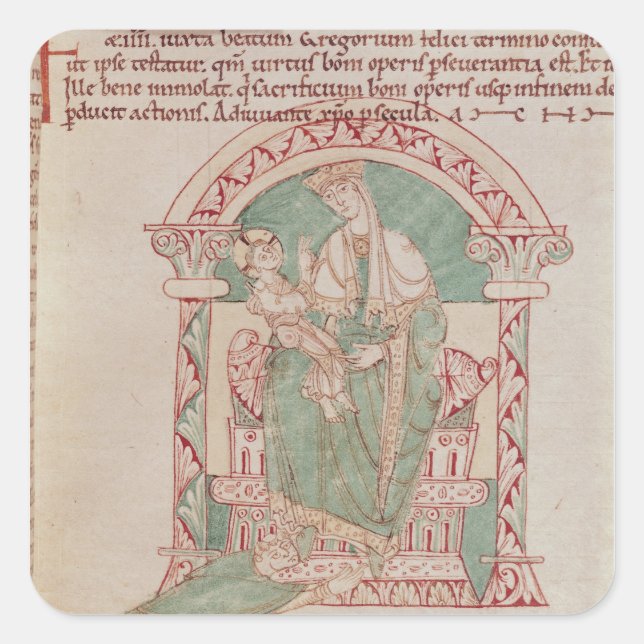 æ.iiii. iuxta beatum Gregorium felici termino
ut ipse testatur. qm̄ uirtus boni operis ꝑseuerantia est. Et
Ille bene immolat. q̇ sacrificium boni operis usq; in finem de
ꝑducit actionis. Adiuuante xp̄o ꝑ secula. A